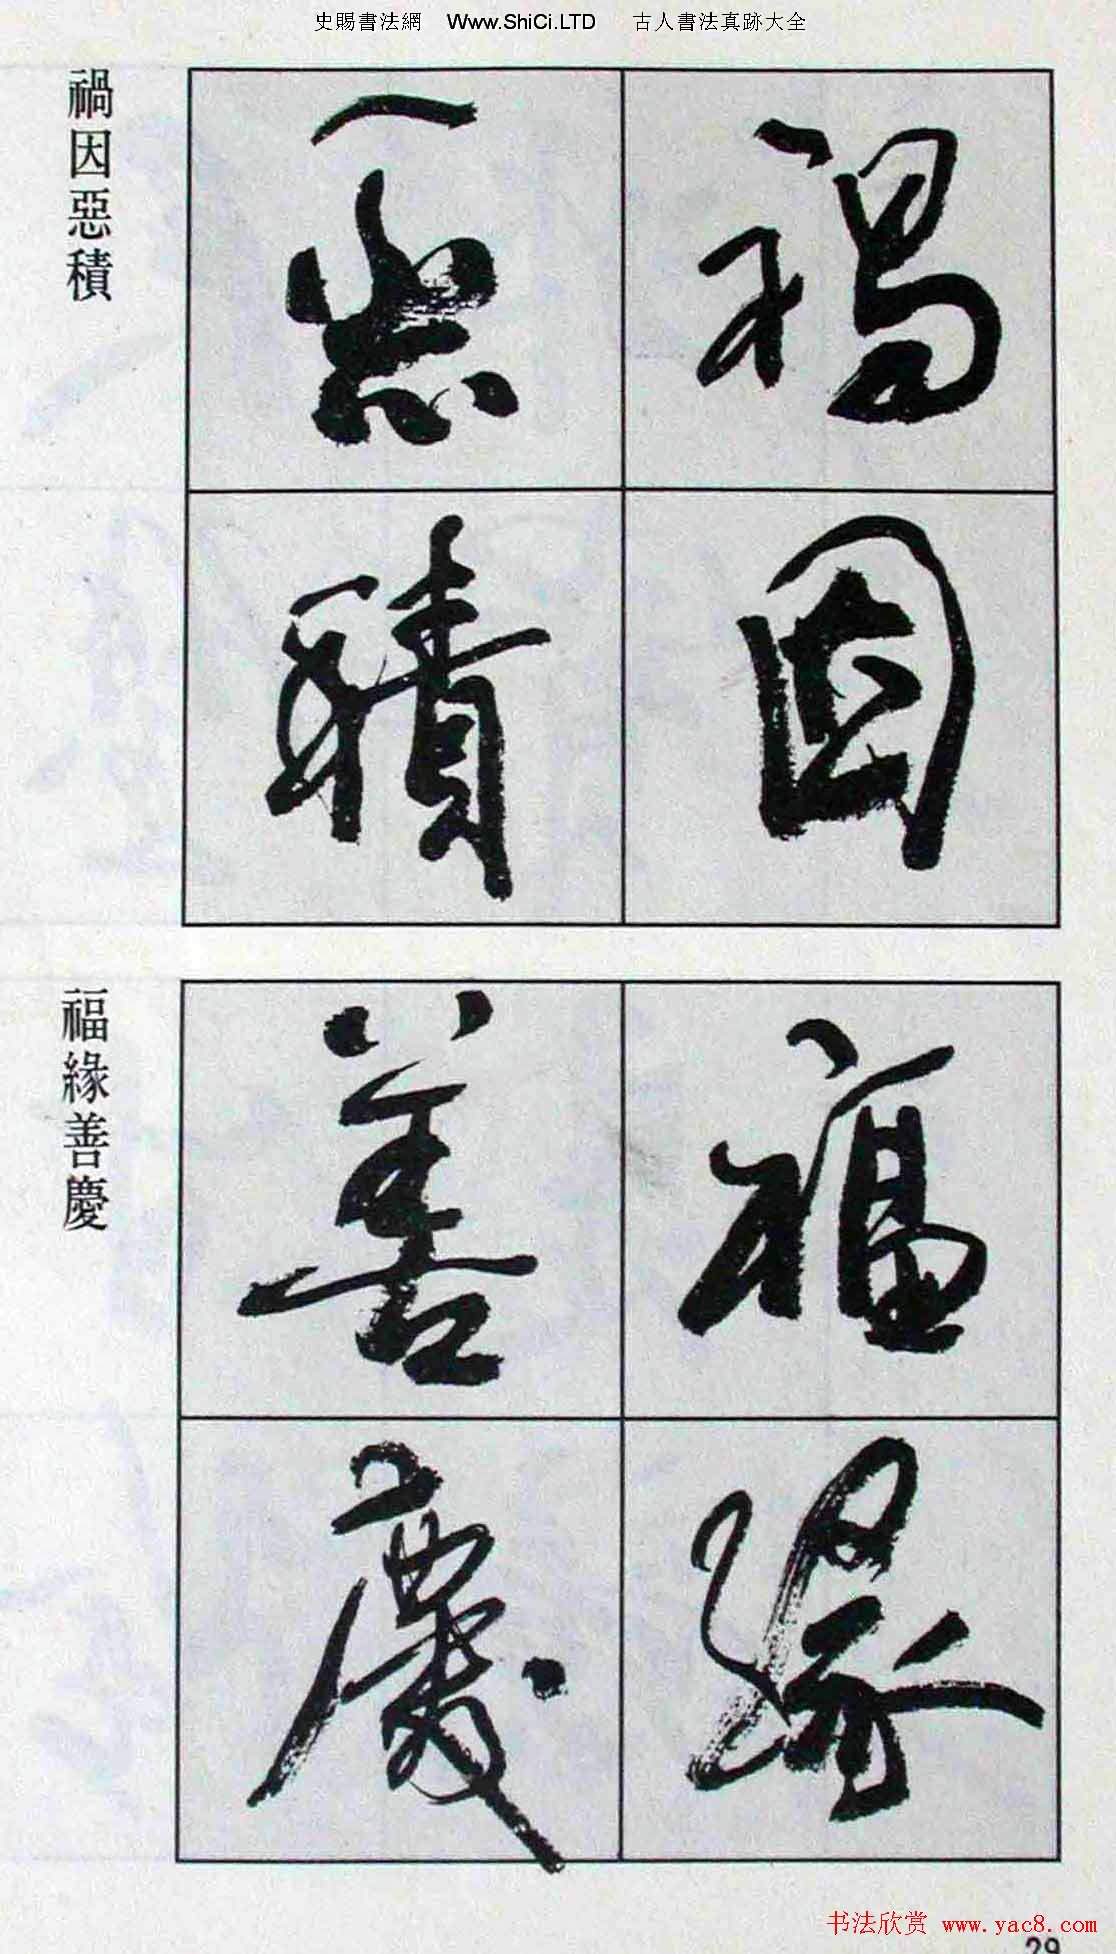 史賜書法網 Www.ShiCi.LTD 古人書法真跡大全
禍因
惡積
禍因惡積
福緣
善慶
福緣善慶
书法欣赏 www.yac8.com
29